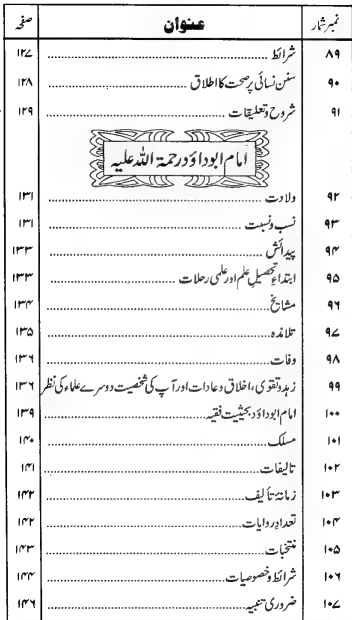 نمبر شمار عنوان صفحہ
۸۹ شرائط ........ ۱۲۷
۹۰ سنن نسائی پر صحت کا اطلاق ........ ۱۲۸
۹۱ شروح و تعلیقات ........ ۱۲۹
امام ابو داؤد رحمۃ اللہ علیہ
۹۲ ولادت ........ ۱۳۱
۹۳ نسب و نسبت ........ ۱۳۱
۹۴ پیدائش ........ ۱۳۳
۹۵ ابتداءِ تحصیلِ علم اور علمی رحلات ........ ۱۳۳
۹۶ مشایخ ........ ۱۳۴
۹۷ تلامذہ ........ ۱۳۵
۹۸ وفات ........ ۱۳۶
۹۹ زہد و تقوی، اخلاق و عادات اور آپ کی شخصیت دوسرے علماء کی نظر ۱۳۶
۱۰۰ امام ابو داؤد بحیثیت فقیہ ........ ۱۳۹
۱۰۱ مسلک ........ ۱۴۰
۱۰۲ تالیفات ........ ۱۴۱
۱۰۳ زمانۂ تألیف ........ ۱۴۲
۱۰۴ تعدادِ روایات ........ ۱۴۲
۱۰۵ منتخبات ........ ۱۴۳
۱۰۶ شرائط و خصوصیات ........ ۱۴۴
۱۰۷ ضروری تنبیہ ........ ۱۴۶